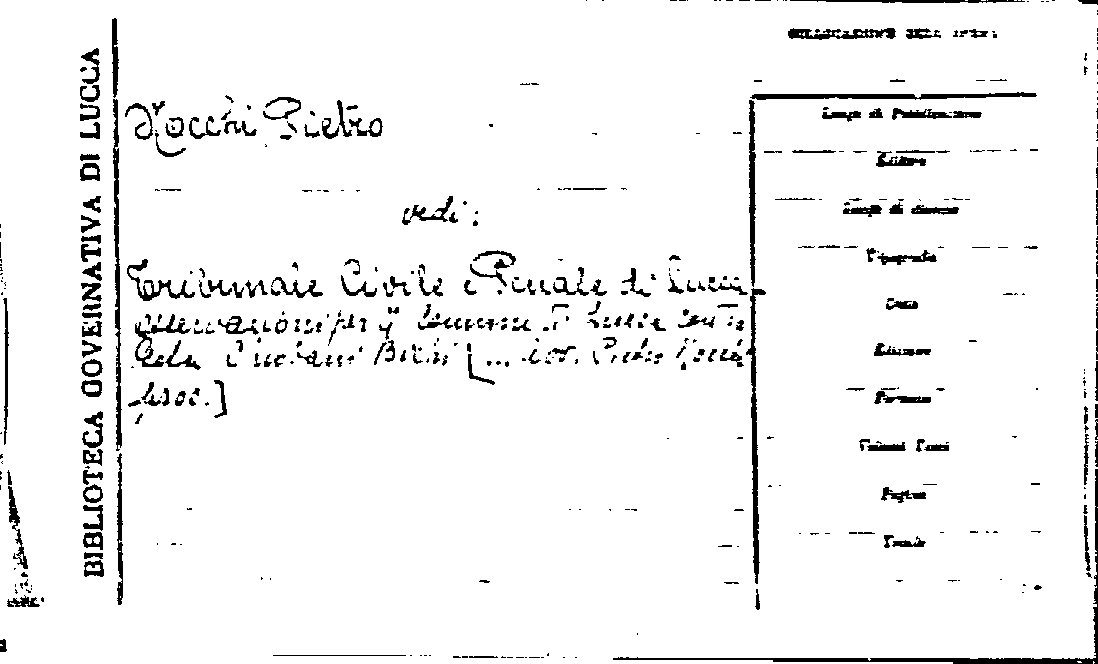 BIBLIOTECA GOVERNATIVA DI LUCCA
COLLOCAZIONE DELL'OPERA
Nocchi Pietro
vedi:
Tribunale Civile e Penale di Lucca
osservazioni per il Comune di Lucca contro
[... avv. Pietro
proc.]
Luogo di Pubblicazione
Editore
Luogo di stampa
Tipografia
Data
Edizione
Formato
Volumi Tomi
Pagine
Tavole